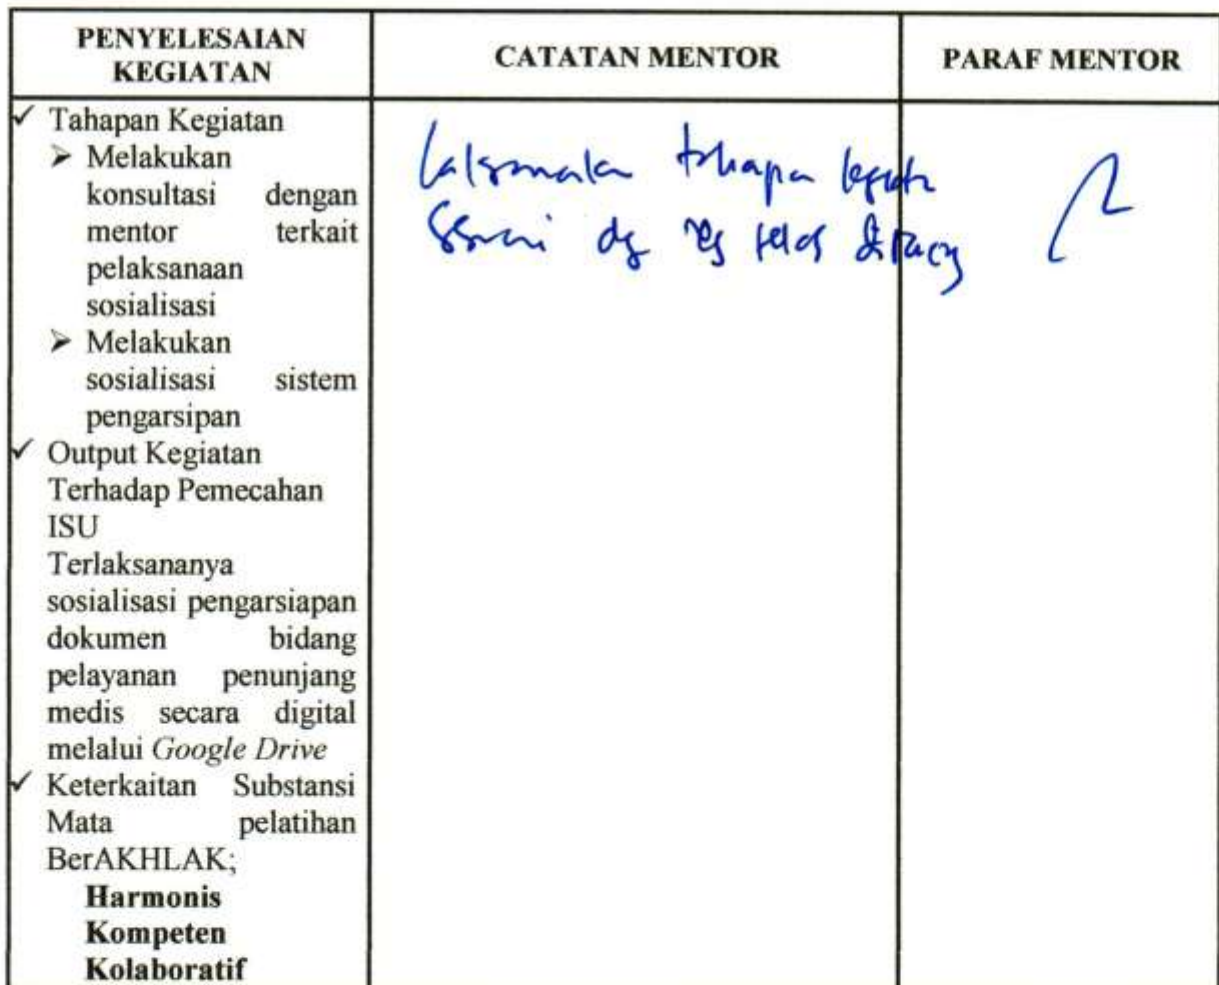 PENYELESAIAN
KEGIATAN
CATATAN MENTOR
PARAF MENTOR
✓ Tahapan Kegiatan
➤ Melakukan
konsultasi dengan
mentor terkait
pelaksanaan
sosialisasi
➤ Melakukan
sosialisasi sistem
pengarsipan
✓ Output Kegiatan
Terhadap Pemecahan
ISU
Terlaksananya
sosialisasi pengarsiapan
dokumen bidang
pelayanan penunjang
medis secara digital
melalui Google Drive
✓ Keterkaitan Substansi
Mata pelatihan
BerAKHLAK;
Harmonis
Kompeten
Kolaboratif
tahapan
sesuai dg